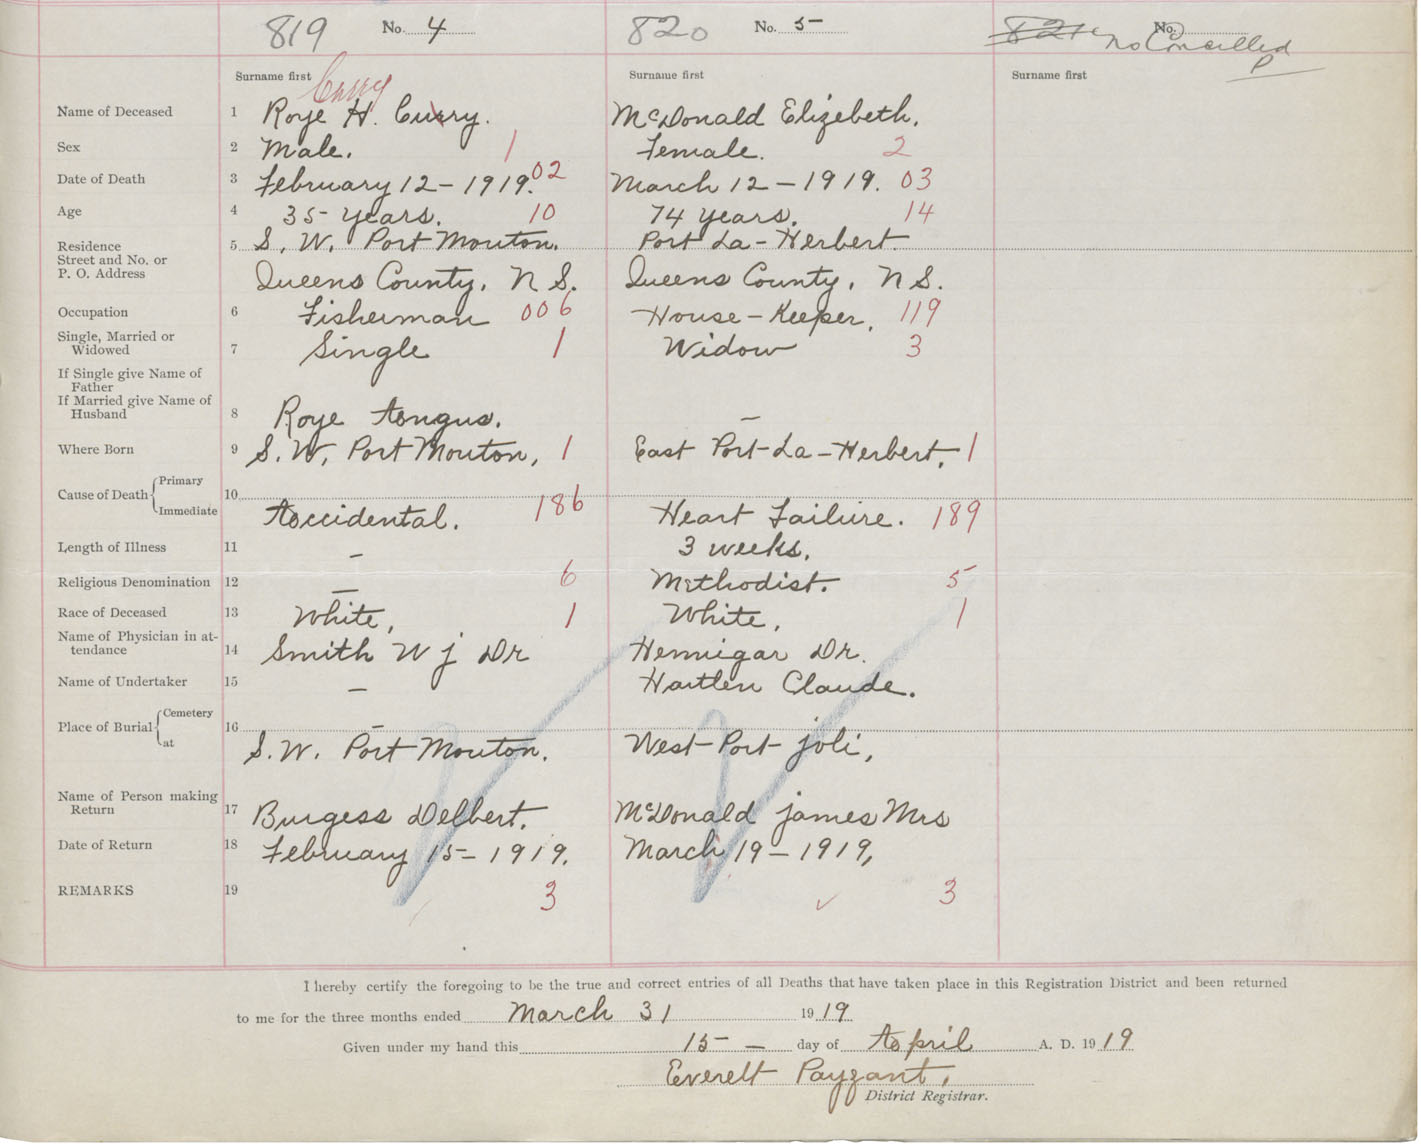 819 No. 4 820 No. 5 821 No. no Cancelled
P
Surname first Surname first Surname first
Curry
Name of Deceased 1 Roye H. Curry. McDonald Elizebeth.
Sex 2 Male. 1 Female. 2
Date of Death 3 February 12 - 1919. 02 March 12 - 1919. 03
Age 4 35 years. 10 74 years. 14
Residence 5 S. W. Port Mouton. Port La-Herbert.
Street and No. or
P. O. Address Queens County, N S. Queens County, N S.
Occupation 6 Fisherman 006 House-Keeper, 119
Single, Married or
Widowed 7 Single 1 Widow 3
If Single give Name of
Father
If Married give Name of
Husband 8 Roye Angus. -
Where Born 9 S. W, Port Mouton, 1 East Port-La-Herbert, 1
Cause of Death { Primary 10
Immediate Accidental. 186 Heart Failure. 189
Length of Illness 11 - 3 weeks.
Religious Denomination 12 - 6 Methodist. 5
Race of Deceased 13 White, 1 White, 1
Name of Physician in at-
tendance 14 Smith W j Dr Hennigar Dr.
Name of Undertaker 15 - Hartlen Claude.
Place of Burial { Cemetery 16 -
at S. W. Port Mouton. West Port joli,
Name of Person making
Return 17 Burgess Delbert. McDonald james Mrs
Date of Return 18 February 15 - 1919. March 19 - 1919,
REMARKS 19 3 3
I hereby certify the foregoing to be the true and correct entries of all Deaths that have taken place in this Registration District and been returned
to me for the three months ended March 31 1919
Given under my hand this 15 - day of April A. D. 1919
Everett Payzant,
District Registrar.